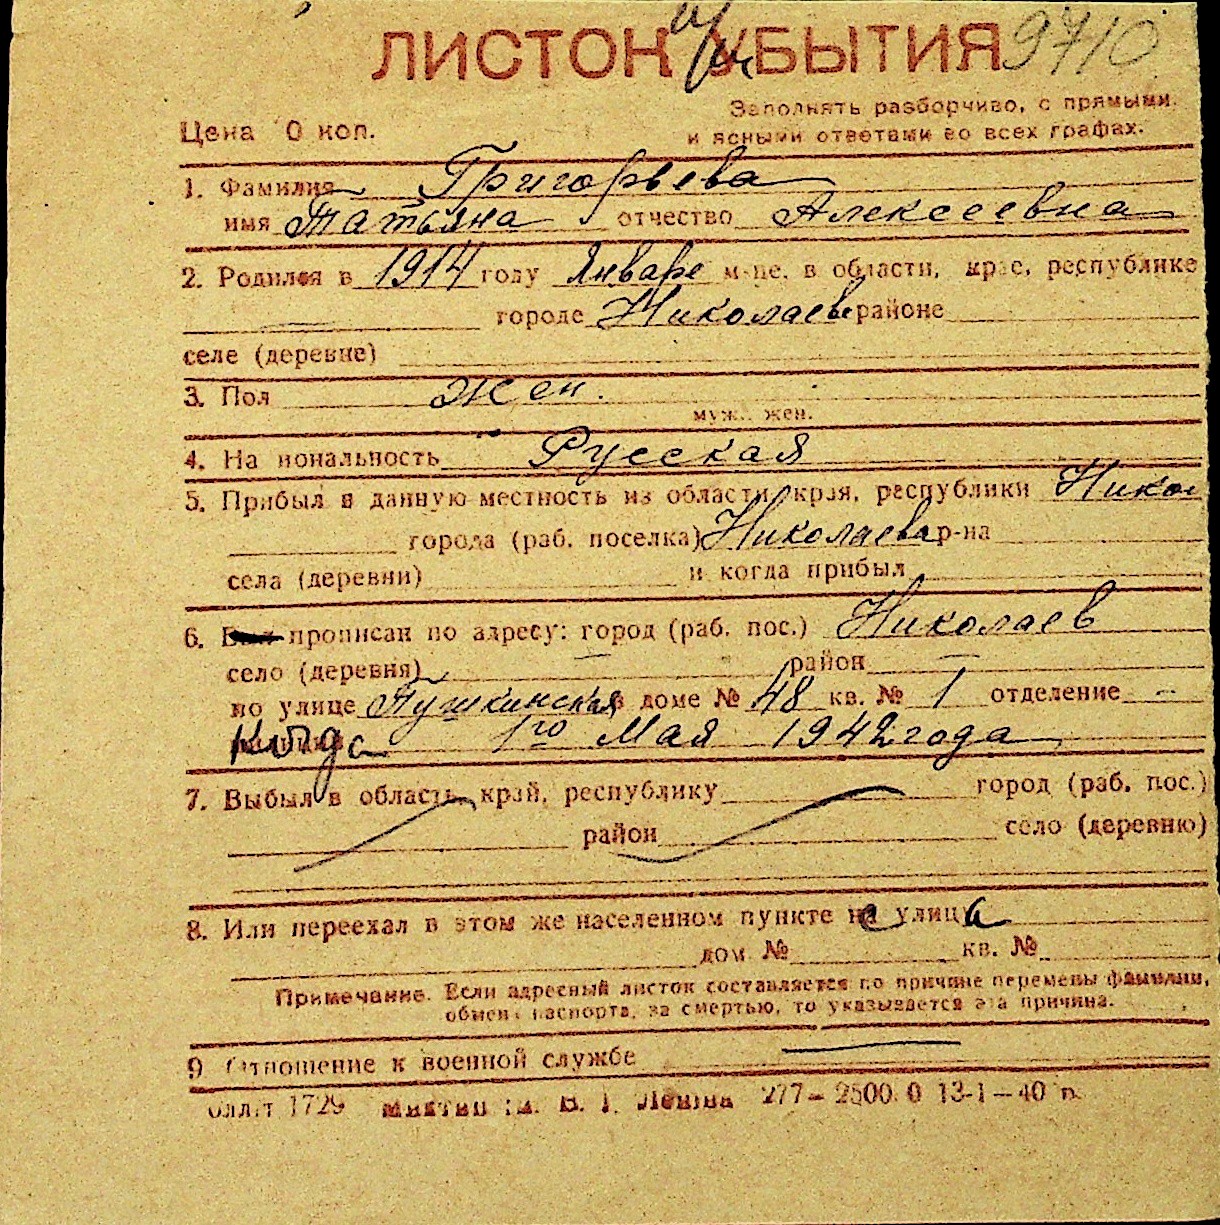 9710
ЛИСТОК УБЫТИЯ
Заполнять разборчиво, с прямыми
Цена 0 коп.
и ясными ответами во всех графах.
1. Фамилия Григорьева
имя Татьяна отчество Алексеевна
2. Родился в 1914 году Январе м-це, в области, крае, республике
городе Николаеве районе
селе (деревне)
3. Пол жен.
муж., жен.
4. Национальность Русская
5. Прибыл в данную местность из области, края, республики Никол
города (раб. поселка) Николаева р-на
села (деревни) и когда прибыл
6. прописан по адресу: город (раб. пос.) Николаев
село (деревня) район
по улице Пушкинская в доме № 48 кв. № 1 отделение —
Когда 1го Мая 1942 года
7. Выбыл в область, край, республику город (раб. пос.)
район село (деревню)
8. Или переехал в этом же населенном пункте на улицу
дом № кв. №
Примечание. Если адресный листок составляется по причине перемены фамилии,
обмена паспорта, за смертью, то указывается эта причина.
9 Отношение к военной службе
1729 им. В. И. Ленина 277—2500.0 13-1—40 г.